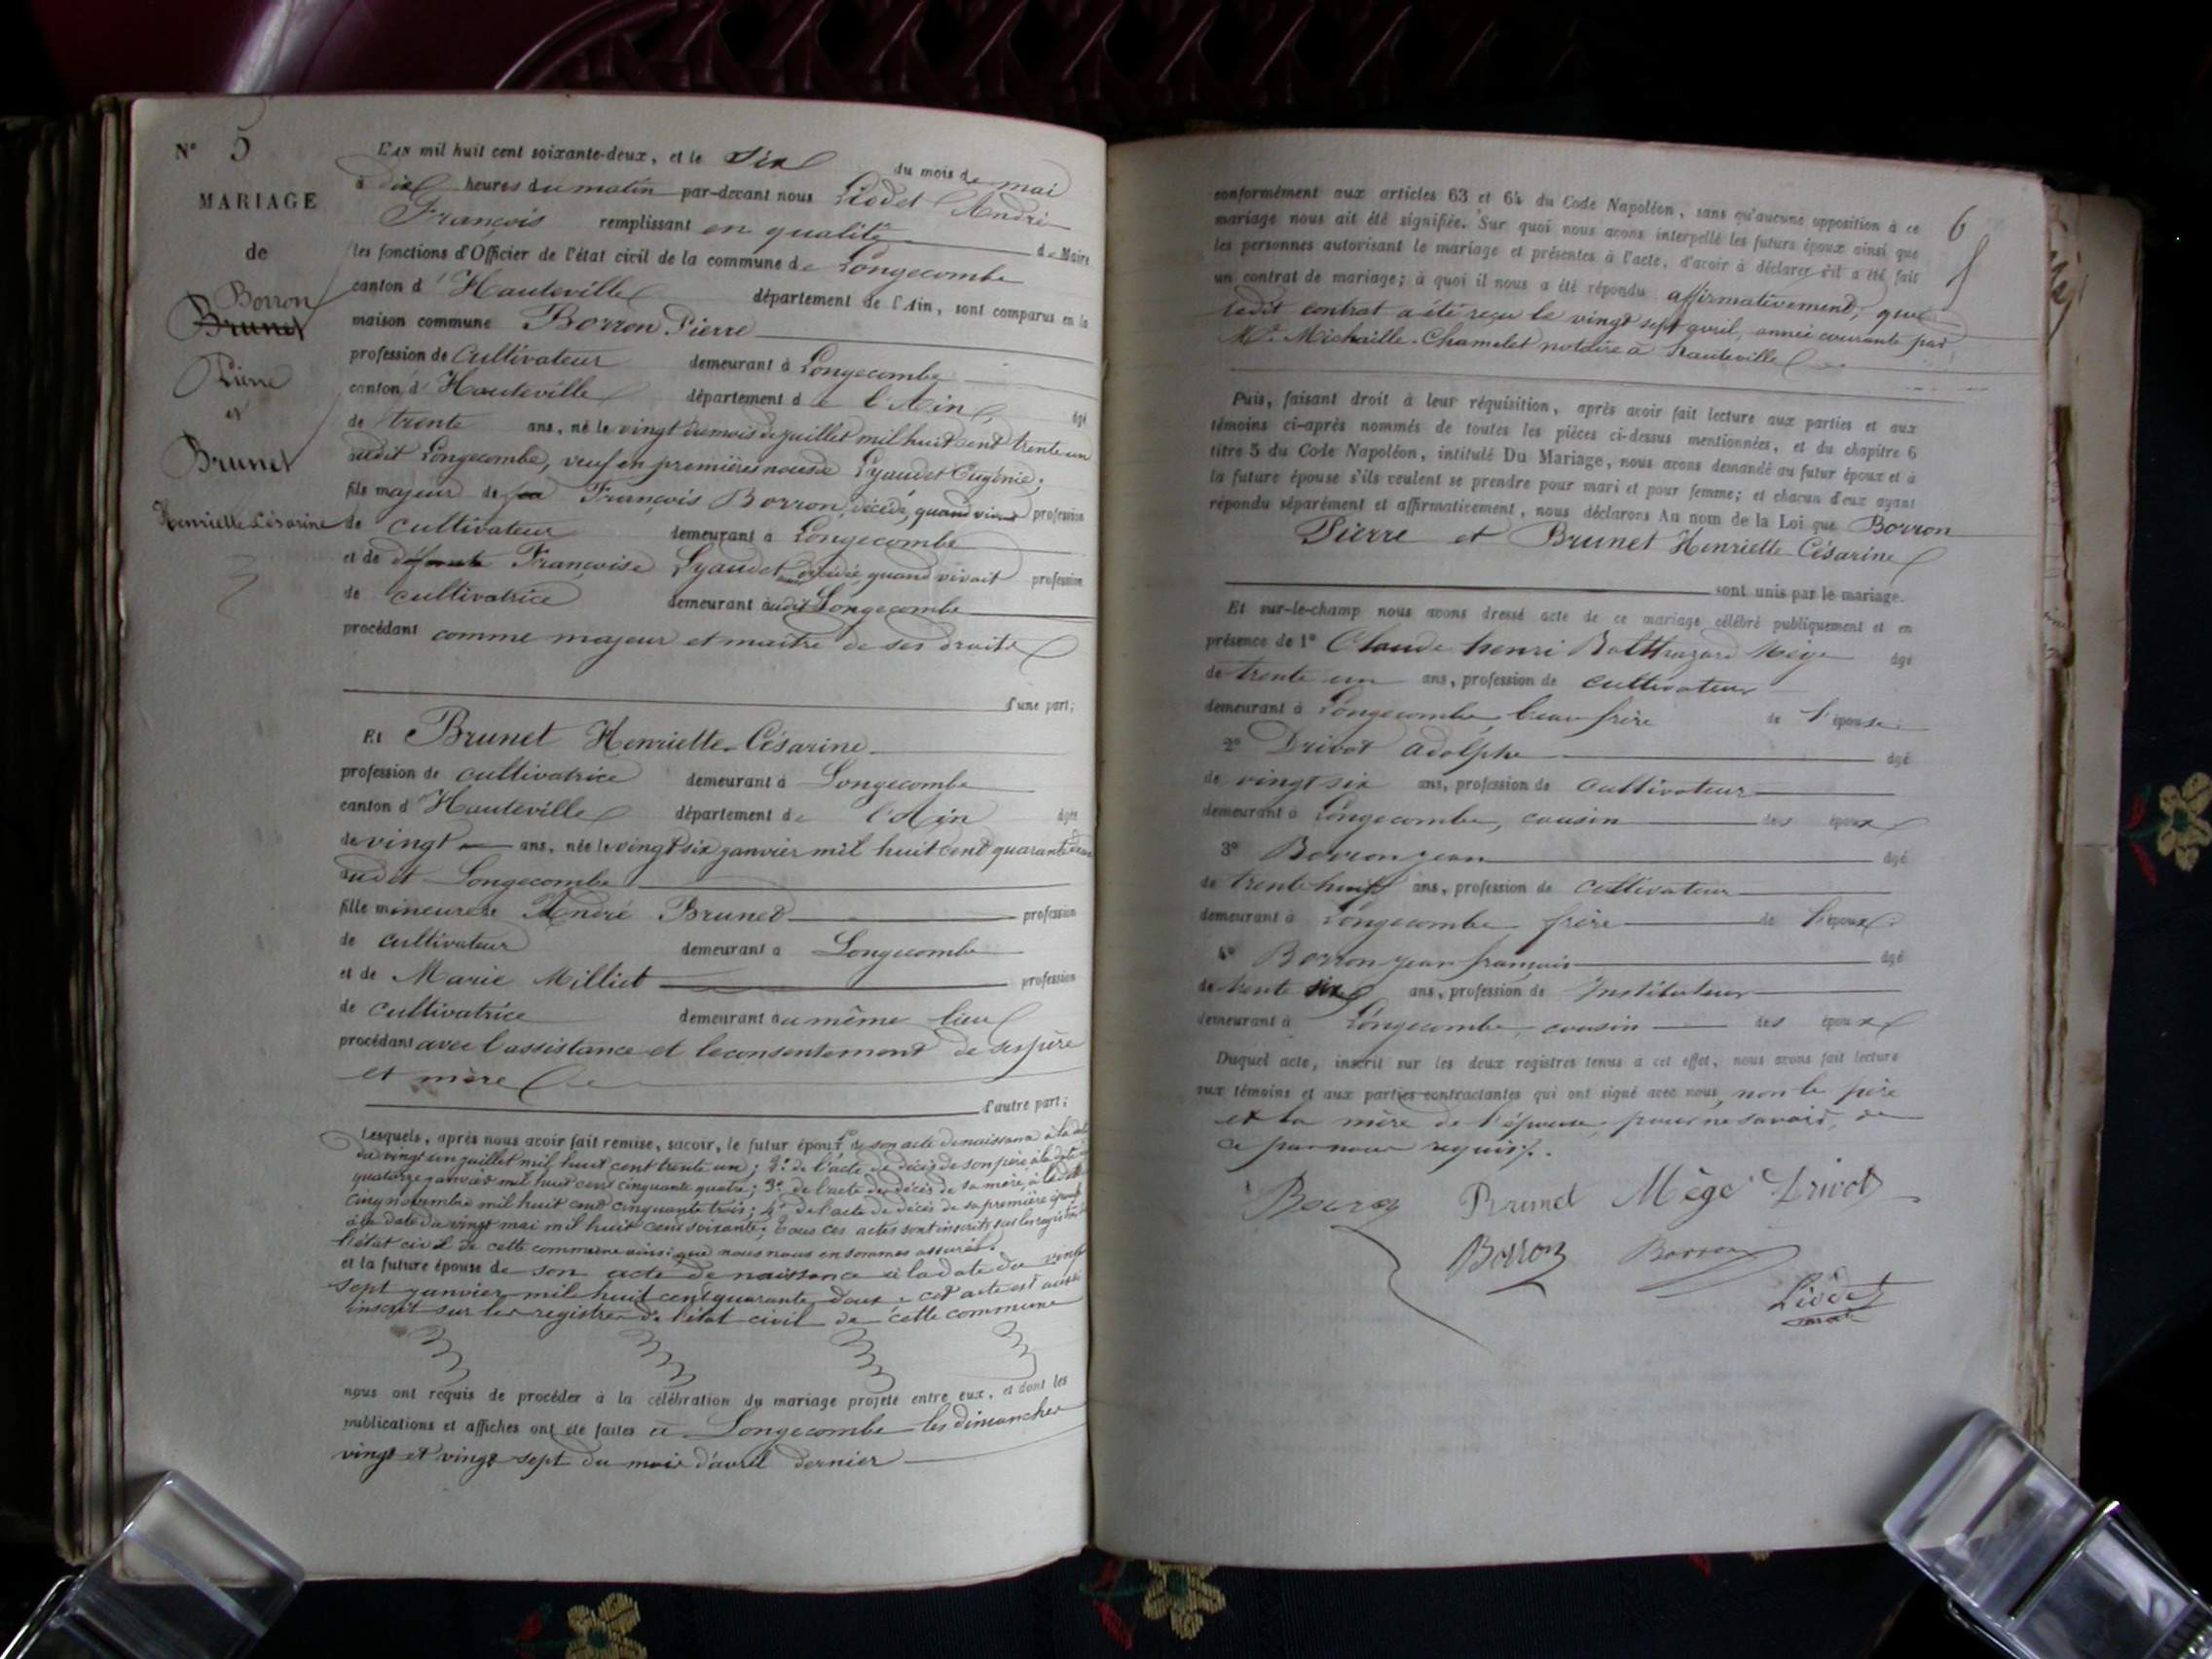 N° 5
MARIAGE
de
Borron
Brunet
Pierre
et
Brunet
Henriette Césarine
L'AN mil huit cent soixante-deux, et le six du mois de mai
à dix heures du matin par-devant nous Liodet André
François remplissant en qualité de Maire
les fonctions d'Officier de l'état civil de la commune de Longecombe
canton d'Hauteville département de l'Ain, sont comparus en la
maison commune Borron Pierre
profession de Cultivateur demeurant à Longecombe
canton d'Hauteville département de l'Ain, âgé
de trente ans, né le vingt du mois de juillet mil huit cent trente un
audit Longecombe, veuf en premières noces de Lyaudet Eugénie;
fils majeur de feu François Borron, décédé, quand vivait profession
de cultivateur demeurant à Longecombe
et de défunte Françoise Lyaudet décédée, quand vivait profession
de cultivatrice demeurant audit Longecombe
procédant comme majeur et maître de ses droits
d'une part;
Et Brunet Henriette-Césarine
profession de cultivatrice demeurant à Longecombe
canton d'Hauteville département de l'Ain âgée
de vingt ans, née le vingt six janvier mil huit cent quarante deux
audit Longecombe
fille mineure de André Brunet profession
de cultivateur demeurant à Longecombe
et de Marie Milliet profession
de cultivatrice demeurant au même lieu
procédant avec l'assistance et le consentement de ses père
et mère
d'autre part;
Lesquels, après nous avoir fait remise, savoir, le futur époux 1° de son acte de naissance à la date
du vingt un juillet mil huit cent trente un; 2° de l'acte de décès de son père à la date du
quatorze janvier mil huit cent cinquante quatre; 3° de l'acte de décès de sa mère, à la date
cinq novembre mil huit cent cinquante trois; 4° de l'acte de décès de sa première épouse
à la date du vingt mai mil huit cent soixante; tous ces actes sont inscrits sur les registres de
l'état civil de cette commune ainsi que nous nous en sommes assurés.
et la future épouse de son acte de naissance à la date du vingt
sept janvier mil huit cent quarante deux; cet acte est aussi
inscrit sur les registres de l'état civil de cette commune
nous ont requis de procéder à la célébration du mariage projeté entre eux, et dont les
publications et affiches ont été faites à Longecombe les dimanches
vingt et vingt sept du mois d'avril dernier
6
conformément aux articles 63 et 64 du Code Napoléon, sans qu'aucune opposition à ce
mariage nous ait été signifiée. Sur quoi nous avons interpellé les futurs époux ainsi que
les personnes autorisant le mariage et présentes à l'acte, d'avoir à déclarer s'il a été fait
un contrat de mariage; à quoi il nous a été répondu affirmativement, que
ledit contrat a été reçu le vingt sept avril, année courante par
Me Michaille-Chamelet notaire à hauteville
Puis, faisant droit à leur réquisition, après avoir fait lecture aux parties et aux
témoins ci-après nommés de toutes les pièces ci-dessus mentionnées, et du chapitre 6
titre 5 du Code Napoléon, intitulé Du Mariage, nous avons demandé au futur époux et à
la future épouse s'ils veulent se prendre pour mari et pour femme; et chacun d'eux ayant
répondu séparément et affirmativement, nous déclarons Au nom de la Loi que Borron
Pierre et Brunet Henriette Césarine
sont unis par le mariage.
Et sur-le-champ nous avons dressé acte de ce mariage célébré publiquement et en
présence de 1° Claude henri Balthazard Mège âgé
de trente un ans, profession de cultivateur
demeurant à Longecombe, beau frère de l'épouse
2° Drivot adolphe âgé
de vingt six ans, profession de cultivateur
demeurant à Longecombe, cousin des époux
3° Borron jean âgé
de trente huit ans, profession de cultivateur
demeurant à Longecombe frère de l'époux
4° Borron jean françois âgé
de trente six ans, profession de Instituteur
demeurant à Longecombe, cousin des époux
Duquel acte, inscrit sur les deux registres tenus à cet effet, nous avons fait lecture
aux témoins et aux parties contractantes qui ont signé avec nous, non le père
et la mère de l'épouse, pour ne savoir, de
ce par nous requis.
Borron Brunet Mège Drivot
Borron Borron
Liodet
maire